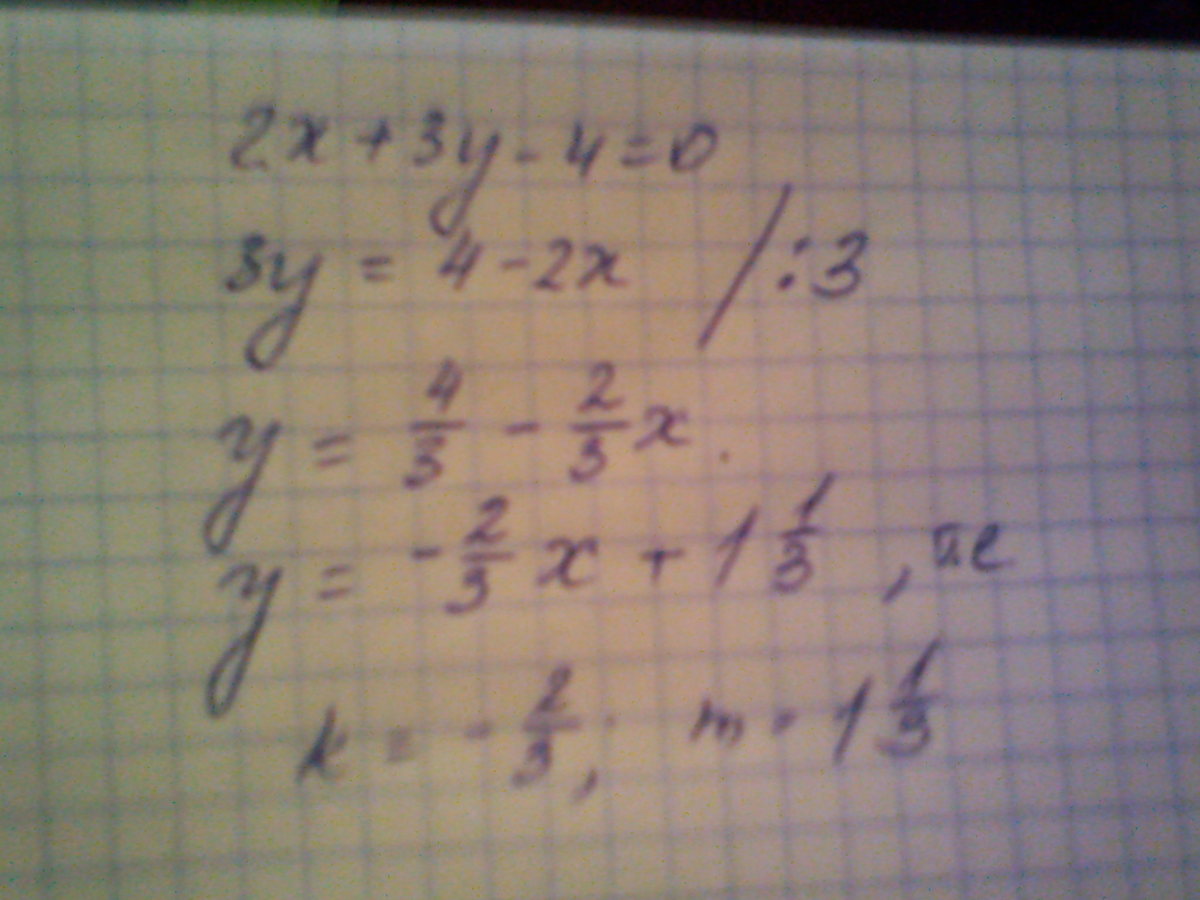 2x + 3y - 4 = 0
3y = 4 - 2x /:3
y = 4/3 - 2/3 x.
y = - 2/3 x + 1 1/3 ,
k = - 2/3, m = 1 1/3